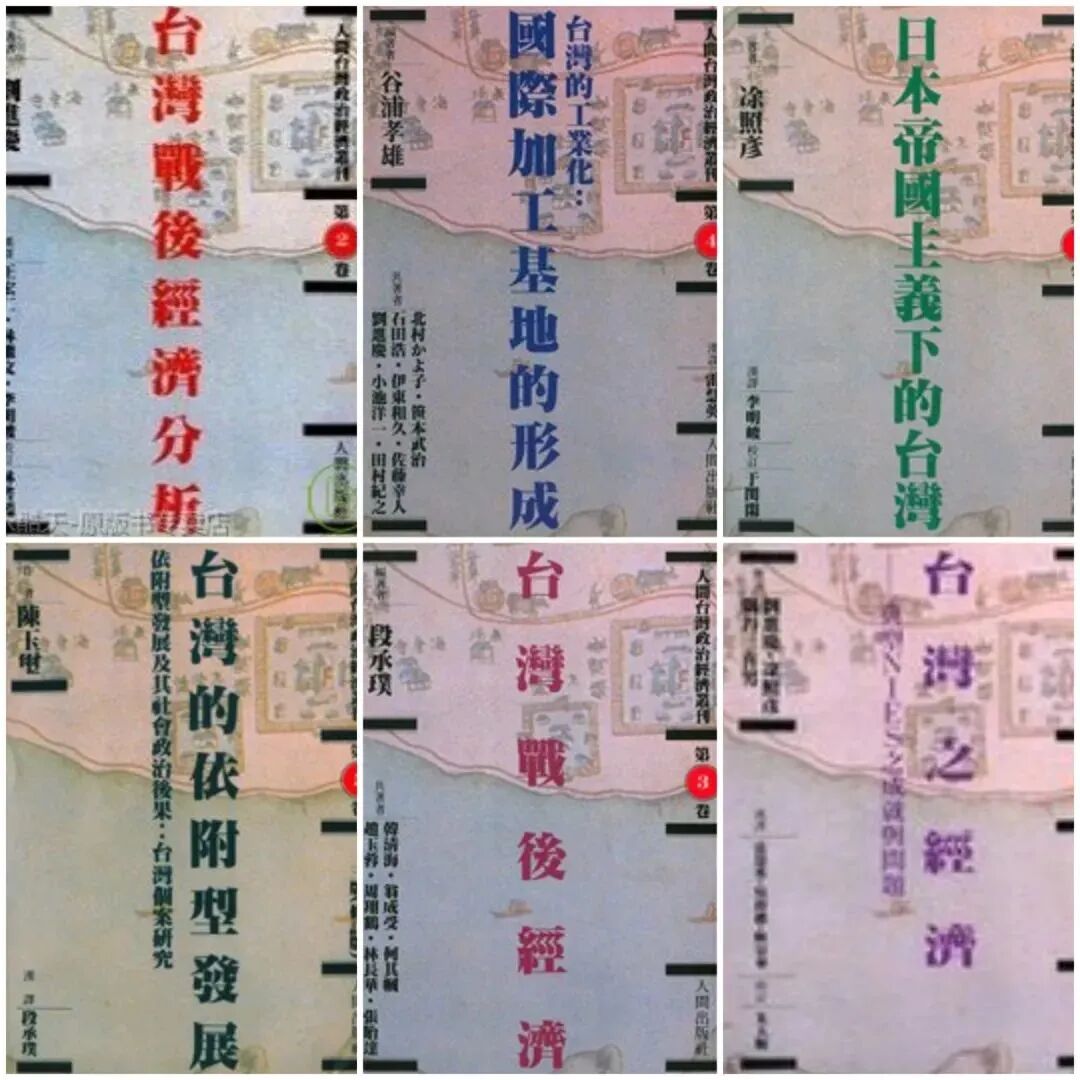 人間台灣政治經濟叢刊
第
2
卷
人間出版社
台灣戰後經濟分析
人間台灣政治經濟叢刊
第
4
卷
人間出版社
台灣的工業化：
國際加工基地的形成
編著者
谷浦孝雄
共著者
北村かよ子・笹本武治
石田浩・伊東和久・佐藤幸人
劉進慶・小池洋一・田村紀之
日本帝國主義下的台灣
著者
凃照彦
漢譯 李明峻
校訂
台灣的依附型發展
依附型發展及其社會政治後果：台灣個案研究
陳玉璽
漢譯
段承璞
人間出版社
人間台灣政治經濟叢刊
第
3
卷
人間出版社
台灣戰後經濟
編著者
段承璞
共著者
韓清海・翁成受・何其颿
趙玉蓉・周翔鶴・林長華・張怡達
台灣之經濟
NIES之成就與問題